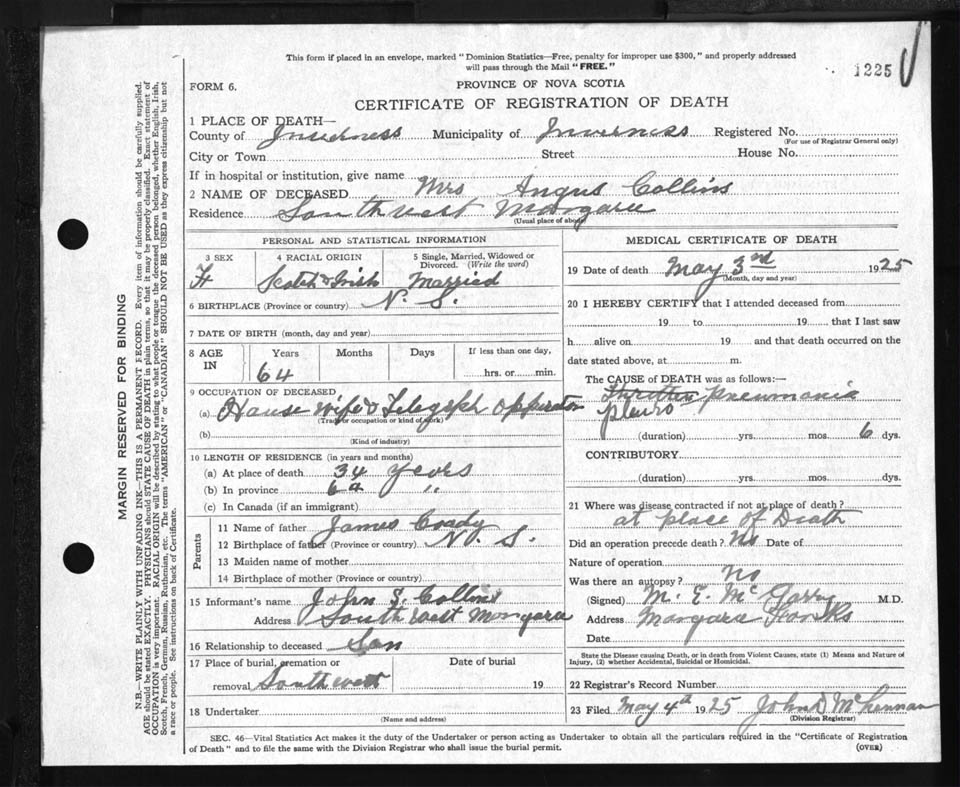 This form if placed in an envelope, marked "Dominion Statistics—Free, penalty for improper use $300," and properly addressed
will pass through the Mail "FREE."
1225
FORM 6.
PROVINCE OF NOVA SCOTIA
CERTIFICATE OF REGISTRATION OF DEATH
1 PLACE OF DEATH—
County of Inverness Municipality of Inverness Registered No.
(For use of Registrar General only)
City or Town Street House No.
If in hospital or institution, give name
2 NAME OF DECEASED Mrs Angus Collins
Residence Southwest Margaree
(Usual place of abode)
PERSONAL AND STATISTICAL INFORMATION
3 SEX 4 RACIAL ORIGIN 5 Single, Married, Widowed or
Divorced. (Write the word)
F Scotch & Irish Married
6 BIRTHPLACE (Province or country) N. S.
7 DATE OF BIRTH (month, day and year)
8 AGE IN Years Months Days If less than one day,
64 hrs. or min.
9 OCCUPATION OF DECEASED
(a) House wife & Telegraph opperator
(Trade, occupation or kind of work)
(b)
(Kind of industry)
10 LENGTH OF RESIDENCE (in years and months)
(a) At place of death 34 years
(b) In province "
(c) In Canada (if an immigrant)
Parents
11 Name of father James Coady
12 Birthplace of father (Province or country) N. S.
13 Maiden name of mother
14 Birthplace of mother (Province or country)
15 Informant's name John S. Collins
Address South West Margaree
16 Relationship to deceased Son
17 Place of burial, cremation or Date of burial
removal South west 19
18 Undertaker
(Name and address)
MEDICAL CERTIFICATE OF DEATH
19 Date of death May 3rd 1925
(Month, day and year)
20 I HEREBY CERTIFY that I attended deceased from
19 to 19 that I last saw
h alive on 19 and that death occurred on the
date stated above, at m.
The CAUSE of DEATH was as follows:—
pneumonia
pleuro
(duration) yrs. mos. 6 dys.
CONTRIBUTORY
(duration) yrs. mos. dys.
21 Where was disease contracted if not at place of death?
at place of Death
Did an operation precede death? No Date of
Nature of operation
Was there an autopsy? no
(Signed) M. E. McGarry M.D.
Address Margaree Forks
Date
State the Disease causing Death, or in death from Violent Causes, state (1) Means and Nature of
Injury, (2) whether Accidental, Suicidal or Homicidal.
22 Registrar's Record Number
23 Filed May 4th 1925 John D McLennan
(Division Registrar)
SEC. 46—Vital Statistics Act makes it the duty of the Undertaker or person acting as Undertaker to obtain all the particulars required in the "Certificate of Registration
of Death" and to file the same with the Division Registrar who shall issue the burial permit.
(OVER)
MARGIN RESERVED FOR BINDING
N.B.—WRITE PLAINLY WITH UNFADING INK—THIS IS A PERMANENT RECORD. Every item of information should be carefully supplied.
AGE should be stated EXACTLY. PHYSICIANS should STATE CAUSE OF DEATH in plain terms, so that it may be properly classified. Exact statement of
OCCUPATION is very important. RACIAL ORIGIN will be described by stating to what people or tongue the deceased person belonged, whether English, Irish,
Scotch, French, German, Russian, Ruthenian, etc. The terms "AMERICAN" or "CANADIAN" SHOULD NOT BE USED as they express citizenship but not
a race or people. See instructions on back of Certificate.